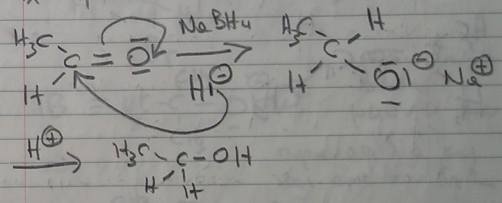 H₃C C = O NaBH₄ H₃C H
H H|⊖ H C O|⊖ Na⊕
H⊕ H₃C C - OH
H H